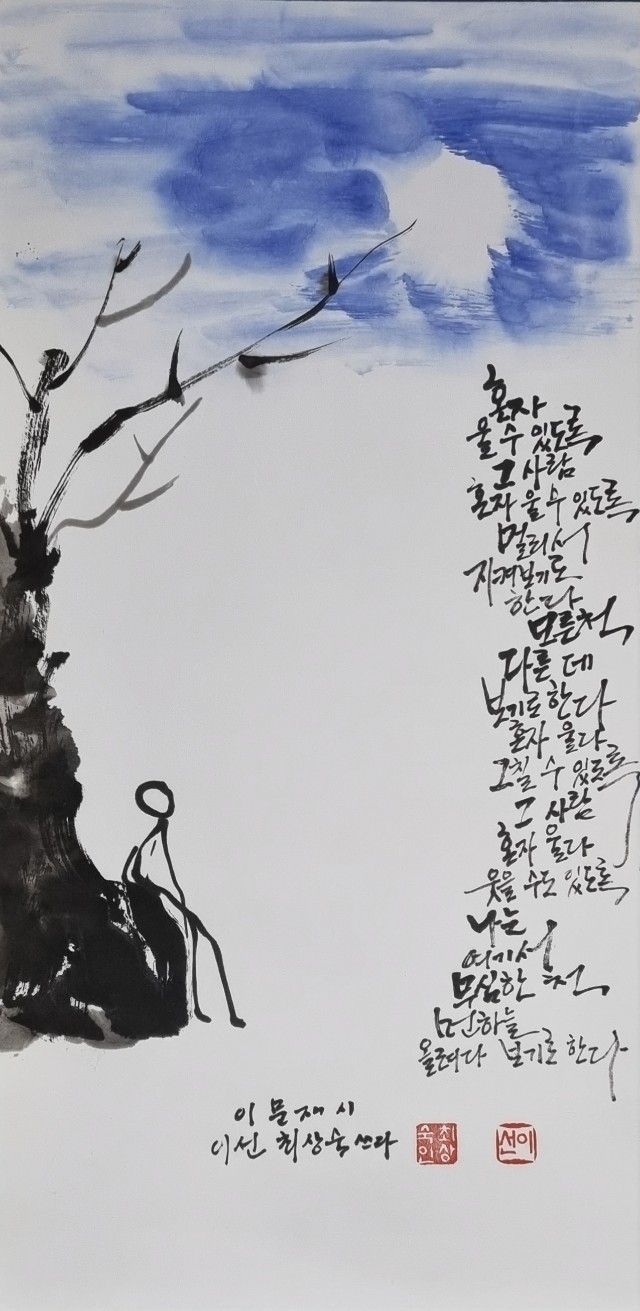 혼자
울 수 있도록
그 사람
혼자 울 수 있도록
멀리서
지켜보기로
한다
모른척
다른 데
보기로 한다
혼자 울다
그칠 수 있도록
그 사람
혼자 울다
웃을 수도 있도록
나는
여기서
무심한 척
먼 하늘
올려다 보기로 한다
이문재 시
이선 최상숙 쓰다
최상
숙인
이선